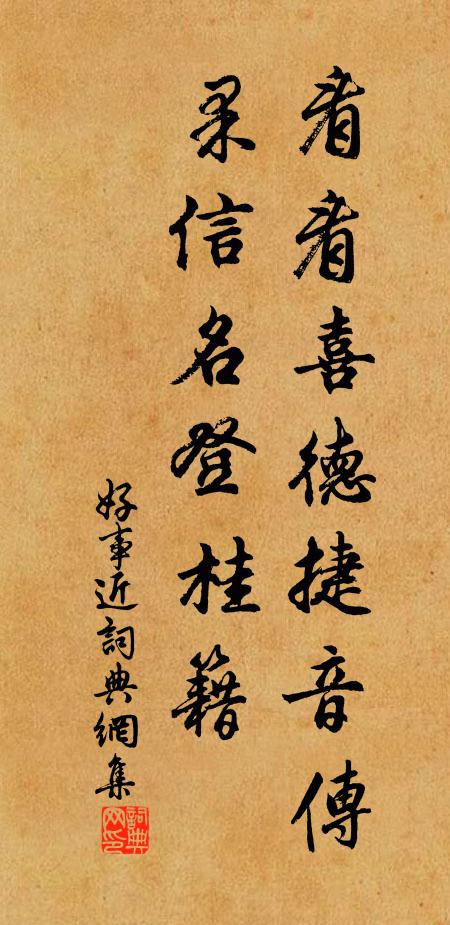 看看喜德捷音傳
果信名登桂籍
好事近詞典網集
詞典
网印